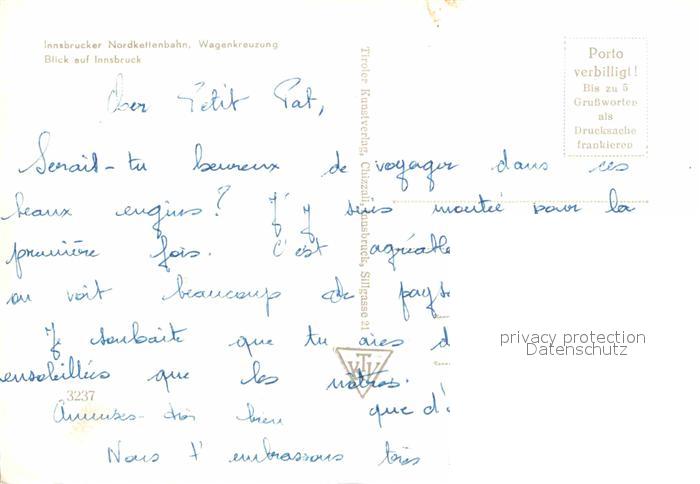 Innsbrucker Nordkettenbahn, Wagenkreuzung
Blick auf Innsbruck
Porto
verbilligt!
Bis zu 5
Grußworten
als
Drucksache
frankieren
Tiroler Kunstverlag, Chizzali, Innsbruck, Sillgasse 21
Cher Petit Pat,
Serais-tu heureux de voyager dans ces
beaux engins? J'y suis montée pour la
première fois. C'est agréable
on voit beaucoup de pays
Je souhaite que tu aies d
ensoleillées que les nôtres.
Amuses-toi bien que d'
Nous t'embrassons très
3237
KTV
privacy protection
Datenschutz